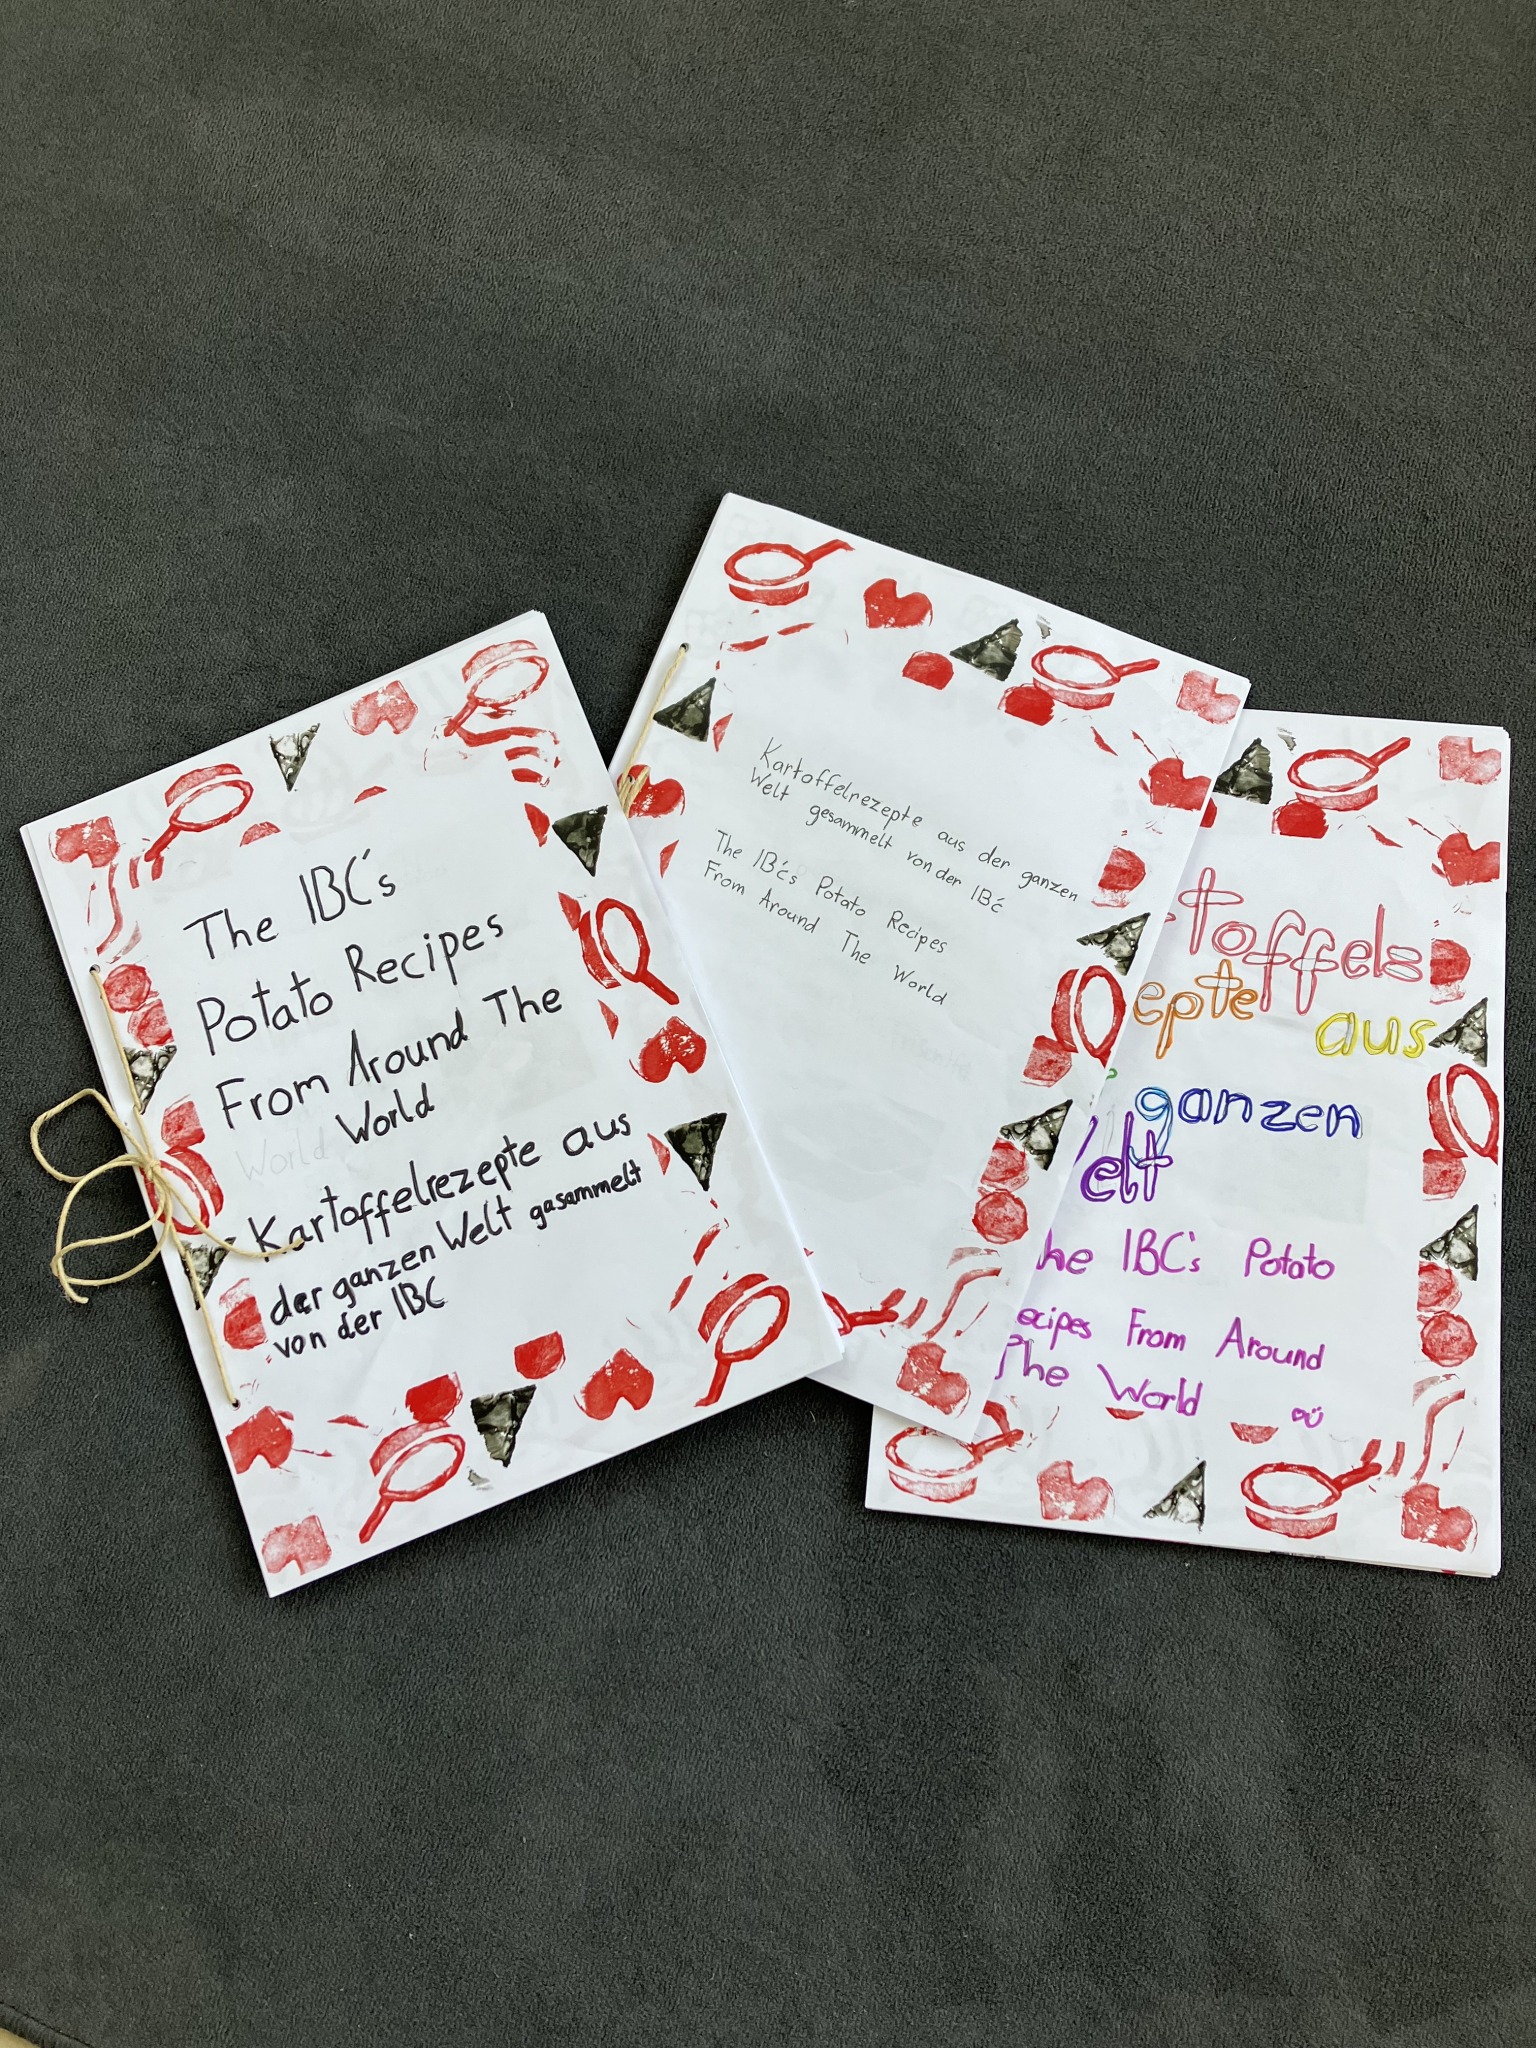 The IBC's
Potato Recipes
From Around The
World
World
Kartoffelrezepte aus
der ganzen Welt gasammelt
von der IBC
Kartoffelrezepte aus der ganzen
Welt gesammelt von der IBC
The IBC's Potato Recipes
From Around The World
toffelz
epte aus
ganzen
elt
he IBC's Potato
ecipes From Around
The World